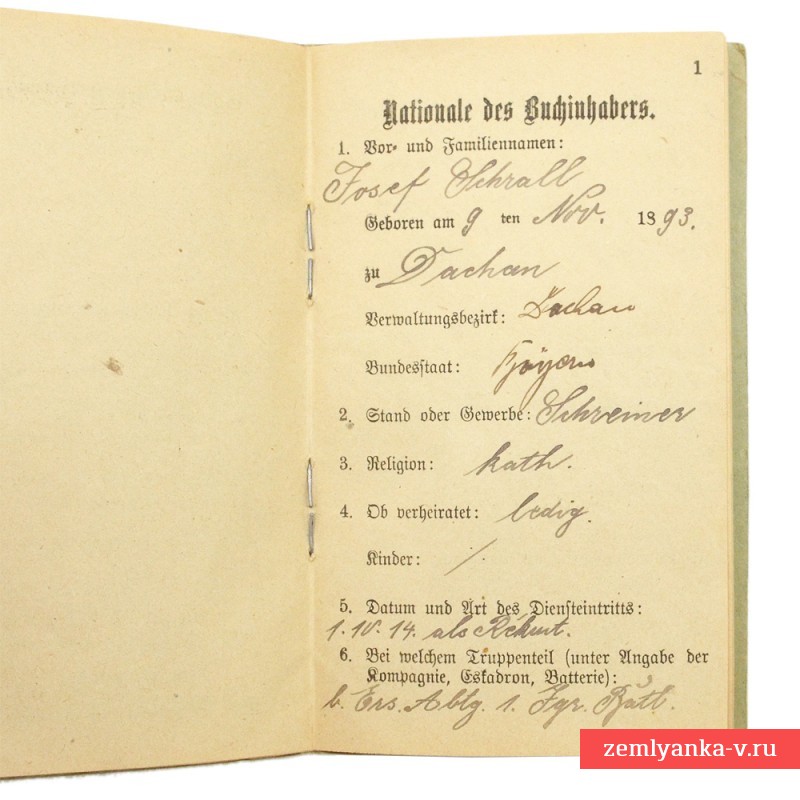 1
Nationale des Buchinhabers.
1. Vor- und Familiennamen:
Josef Schrall
Geboren am 9 ten Nov. 1893.
zu Dachau
Verwaltungsbezirk: Dachau
Bundesstaat: Bayern
2. Stand oder Gewerbe: Schreiner
3. Religion: kath.
4. Ob verheiratet: ledig.
Kinder: /.
5. Datum und Art des Diensteintritts:
1. IV. 14. als Rekrut.
6. Bei welchem Truppenteil (unter Angabe der
Kompagnie, Eskadron, Batterie):
b. Ers. Abtg. 1. Jgr. Batl.
zemlyanka-v.ru